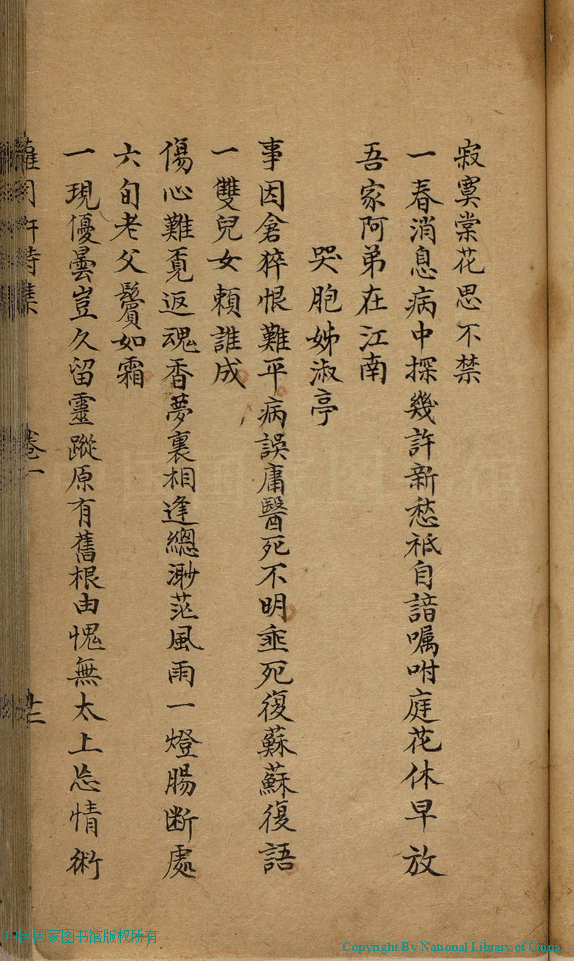 寂寞棠花思不禁
一春消息病中探幾許新愁袛自諳囑咐庭花休早放
吾家阿弟在江南
哭胞姊淑亭
事因倉猝恨難平病誤庸醫死不明垂死復蘇蘇復語
一雙兒女頼誰成
傷心難覓返魂香夢裏相逢總渺茫風雨一燈腸断處
六旬老父鬢如霜
一現優曇豈久留靈蹤原有舊根由愧無太上忘情術
詩集
卷一
十二
中国国家图书馆版权所有
Copyright By National Library of China